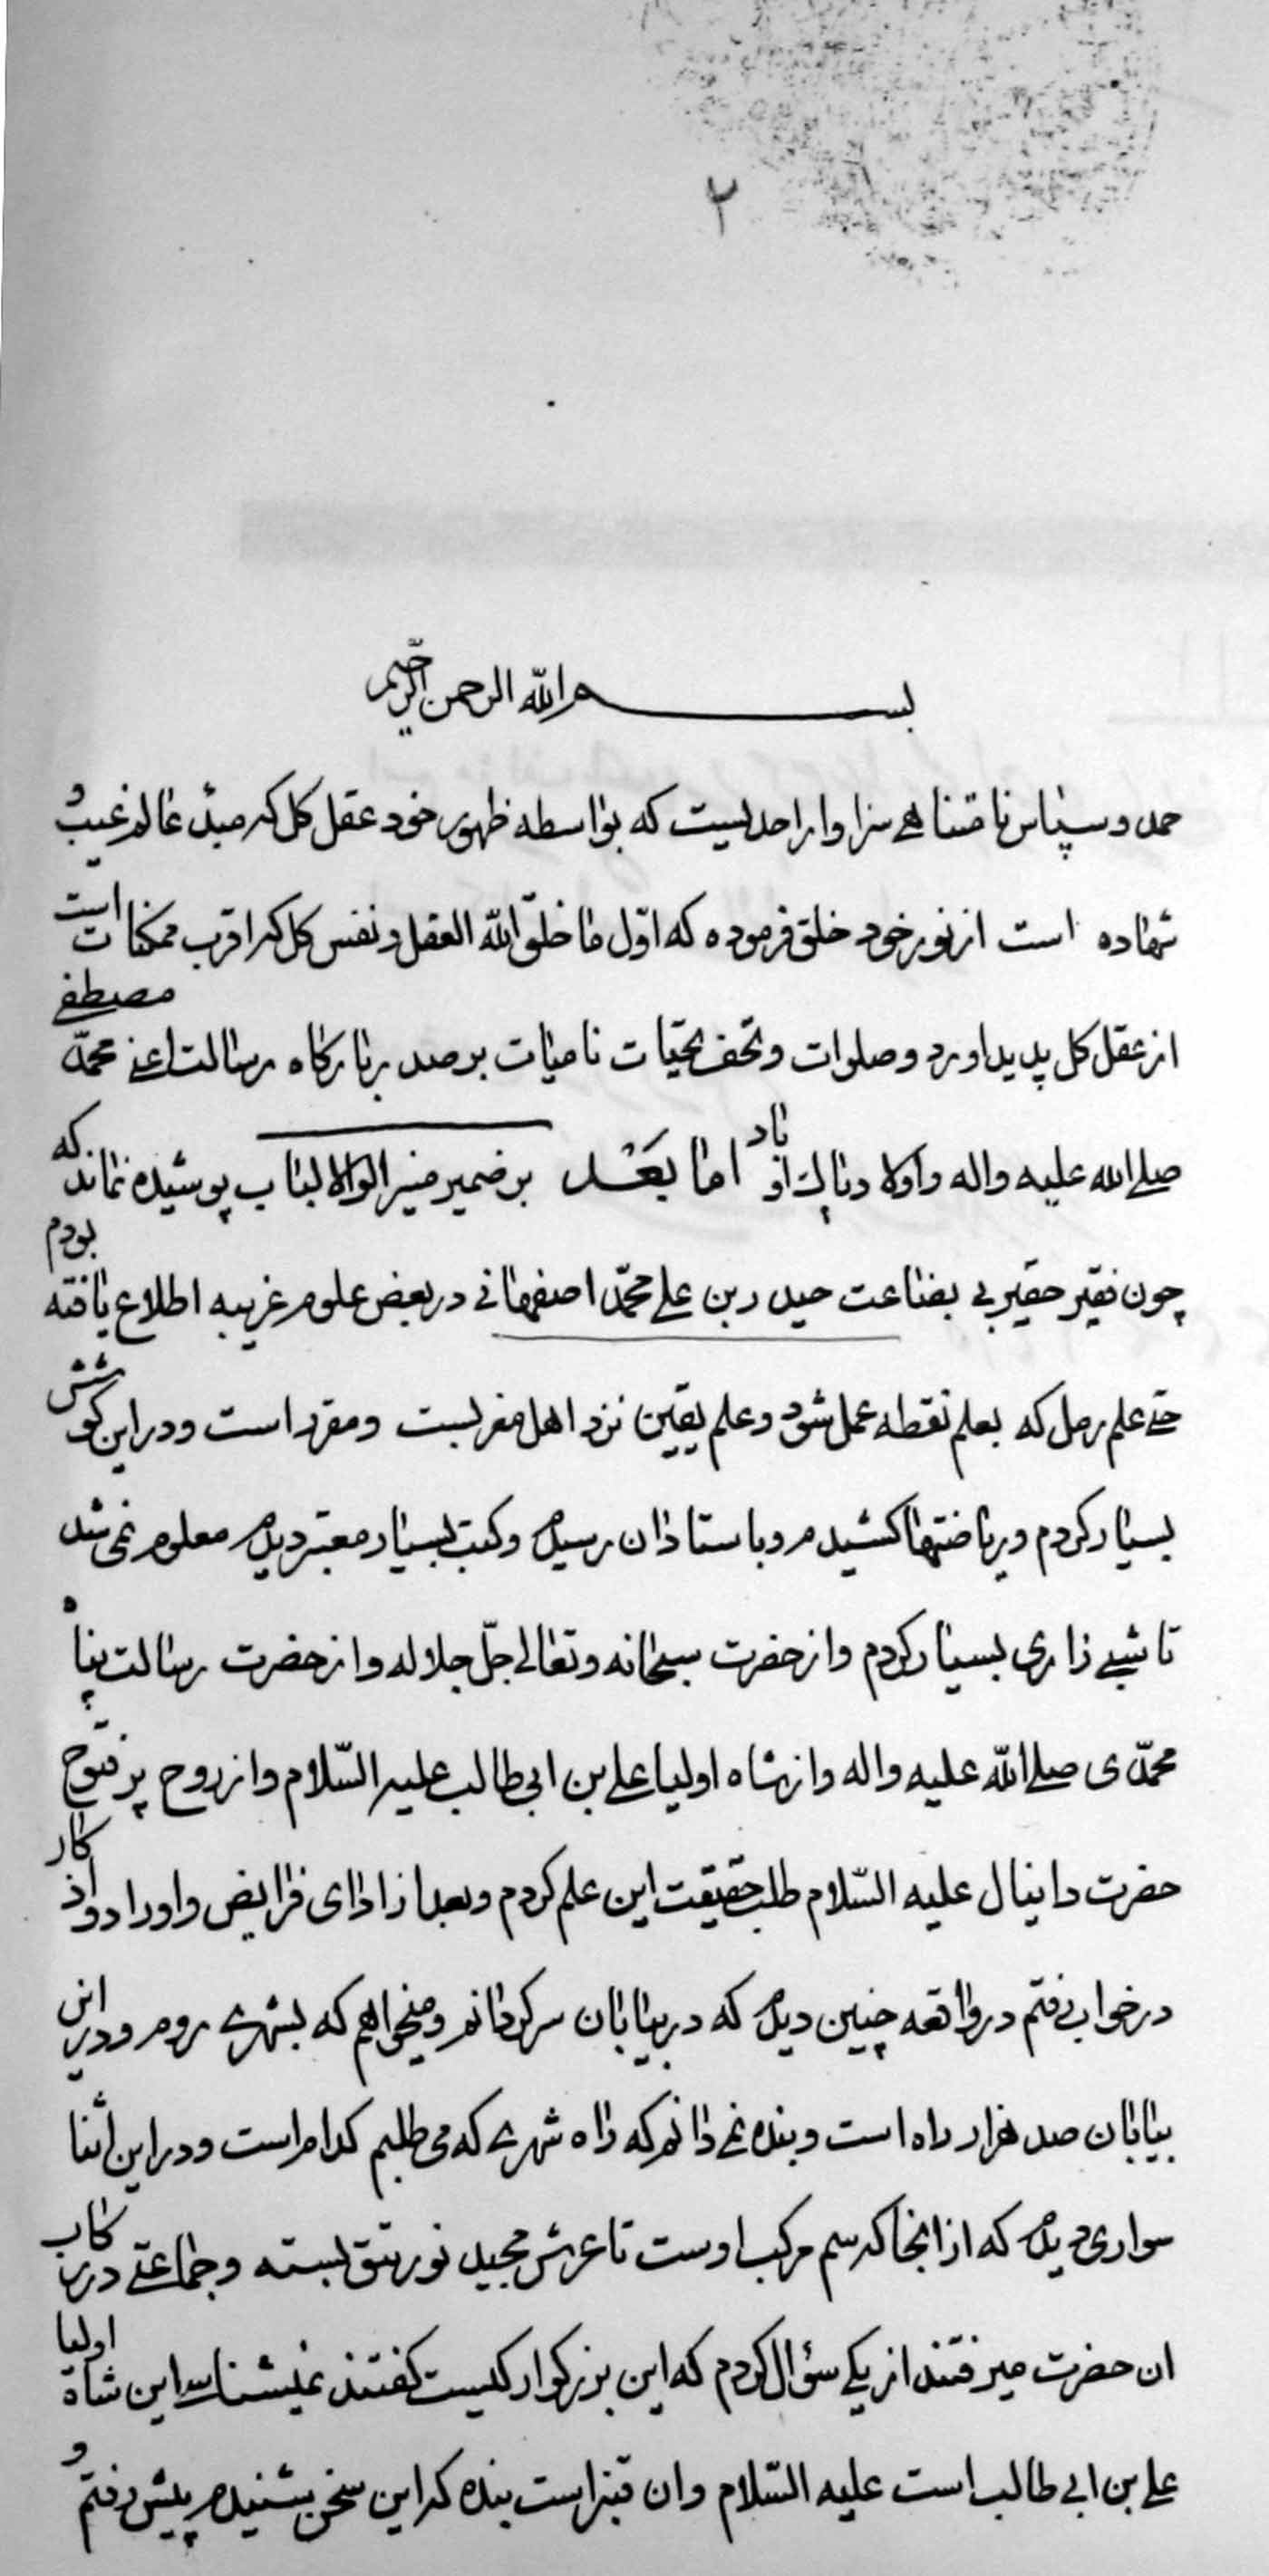 ۲
بسم الله الرحمن الرحیم
حمد و سپاس نامتناهی سزاوار احدیست که بواسطه ظهور خود عقل کل که مبدٔ عالم غیب و
شهاده است از نور خود خلق فرموده که اوّل ما خلق اللّه العقل و نفس کل که اقرب ممکنات است
از عقل کل پدید اورد و صلوات و تحف تحیّات نامیات بر صدر بارکاه رسالت اعنی محمّد مصطفی
صلی الله علیه واله و اولاد پاک او باد اما بَعْد بر ضمیر منیر اولوالالباب پوشیده نماند که
چون فقیر حقیر بی بضاعت حیدر بن علی محمّد اصفهانی در بعض علوم غریبه اطلاع یافته بودم
حتی علم رمل که بعلم نقطه عمل شود و علم یقین نزد اهل مغربست و مقرر است و در این کوشش
بسیار کردم و ریاضتها کشیدم و با ستادان رسیدم و کتب بسیار معتبر دیدم معلوم نمی شد
تا شبی زاری بسیار کردم و از حضرت سبحانه و تعالی جلّ جلاله و از حضرت رسالت پناه
محمّدی صلی اللّه علیه واله و از شاه اولیا علی بن ابی طالب علیه السّلام و از روح پر فتوح
حضرت دانیال علیه السّلام طلب حقیقت این علم کردم و بعد از ادای فرایض و اوراد و اذکار
در خواب رفتم در واقعه چنین دیدم که در بیابان سرکردانم و میخواهم که بشهری روم و در این
بیابان صد هزار راه است و بنده نمی دانم که راه شهری که می طلبم کدام است و در این اثنا
سواری دیدم که از انجا که سم مرکب اوست تا عرش مجید نور تتق بسته و جماعتی در رکاب
ان حضرت میرفتند از یکی سؤال کردم که این بزرکوار کیست کفتند نمیشناسی این شاه اولیا
علی بن ابی طالب است علیه السّلام و ان قنبر است بنده که این سخن بشنیدم پیش رفتم و